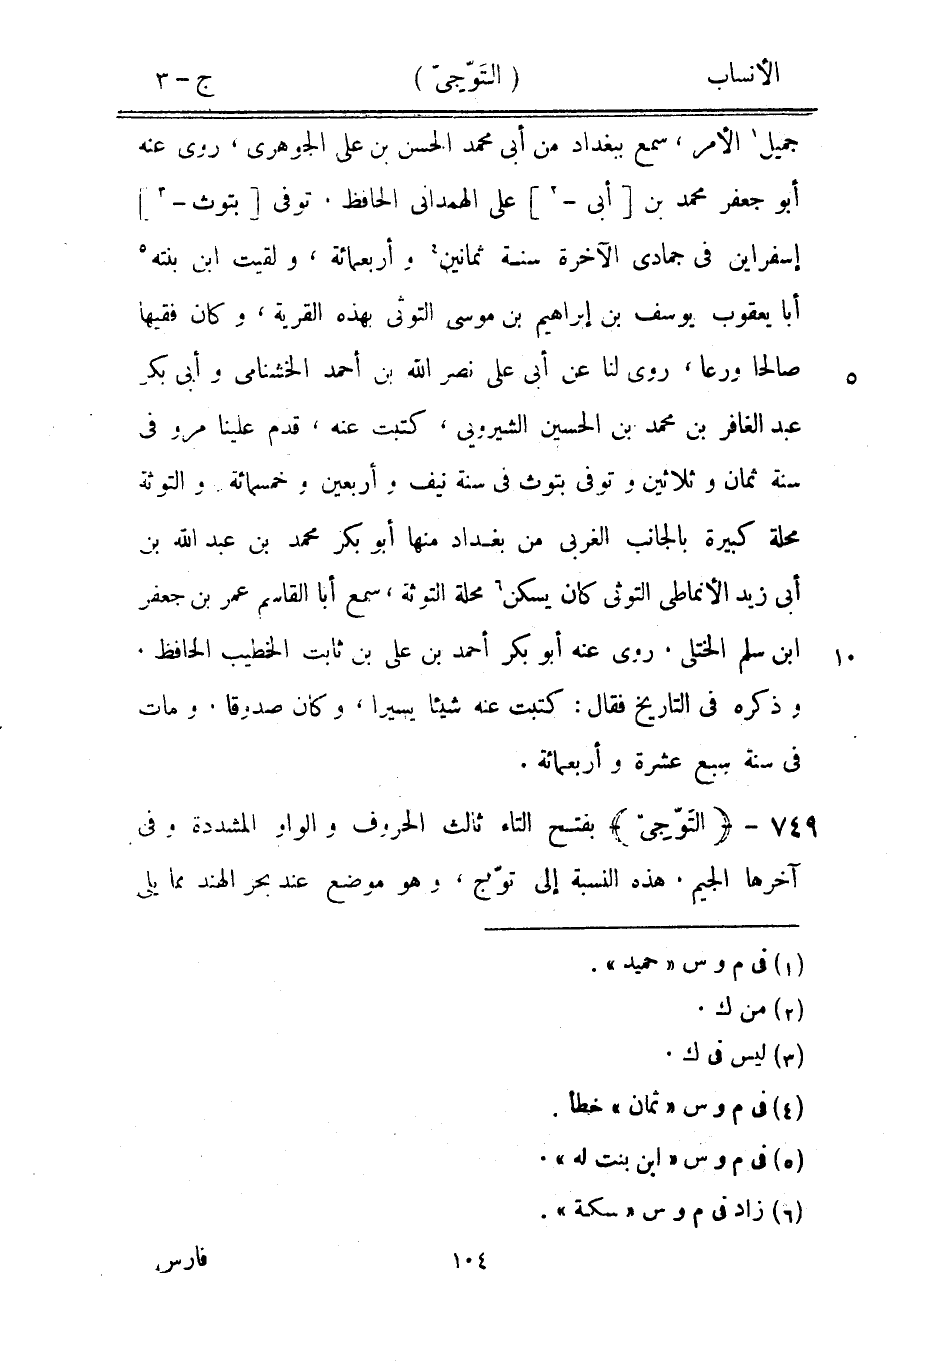 الأنساب ( التَوّجىّ ) ج - ٣
جميل١ الأمر ، سمع ببغداد من أبى محمد الحسن بن على الجوهرى ، روى عنه
أبو جعفر محمد بن [ أبى - ٢ ] على الهمدانى الحافظ . توفى [ بتوث - ٣ ]
إسفراين فى جمادى الآخرة سنة ثمانين٤ و أربعمائة ، و لقيت ابن بنته٥
أبا يعقوب يوسف بن إبراهيم بن موسى التوثى بهذه القرية ، و كان فقيها
صالحا ورعا ، روى لنا عن أبى على نصر الله بن أحمد الخشنامى و أبى بكر ٥
عبد الغافر بن محمد بن الحسين الشيرويى ، كتبت عنه ، قدم علينا مرو فى
سنة ثمان و ثلاثين و توفى بتوث فى سنة نيف و أربعين و خمسمائة . و التوثة
محلة كبيرة بالجانب الغربى من بغداد منها أبو بكر محمد بن عبد الله بن
أبى زيد الأنماطى التوثى كان يسكن٦ محلة التوثة ، سمع أبا القاسم عمر بن جعفر
ابن سلم الختلى . روى عنه أبو بكر أحمد بن على بن ثابت الخطيب الحافظ . ١٠
و ذكره فى التاريخ فقال : كتبت عنه شيئا يسيرا ، و كان صدوقا . و مات
فى سنة سبع عشرة و أربعمائة .
٧٤٩ - ﴿ التَوّجىّ ﴾ بفتح التاء ثالث الحروف و الواو المشددة و فى
آخرها الجيم . هذه النسبة إلى توّج ، و هو موضع عند بحر الهند مما يلى
(١) فى م و س « حميد » .
(٢) من ك .
(٣) ليس فى ك .
(٤) فى م و س « ثمان » خطأ .
(٥) فى م و س « ابن بنت له » .
(٦) زاد فى م و س « سكة » .
١٠٤ فارس